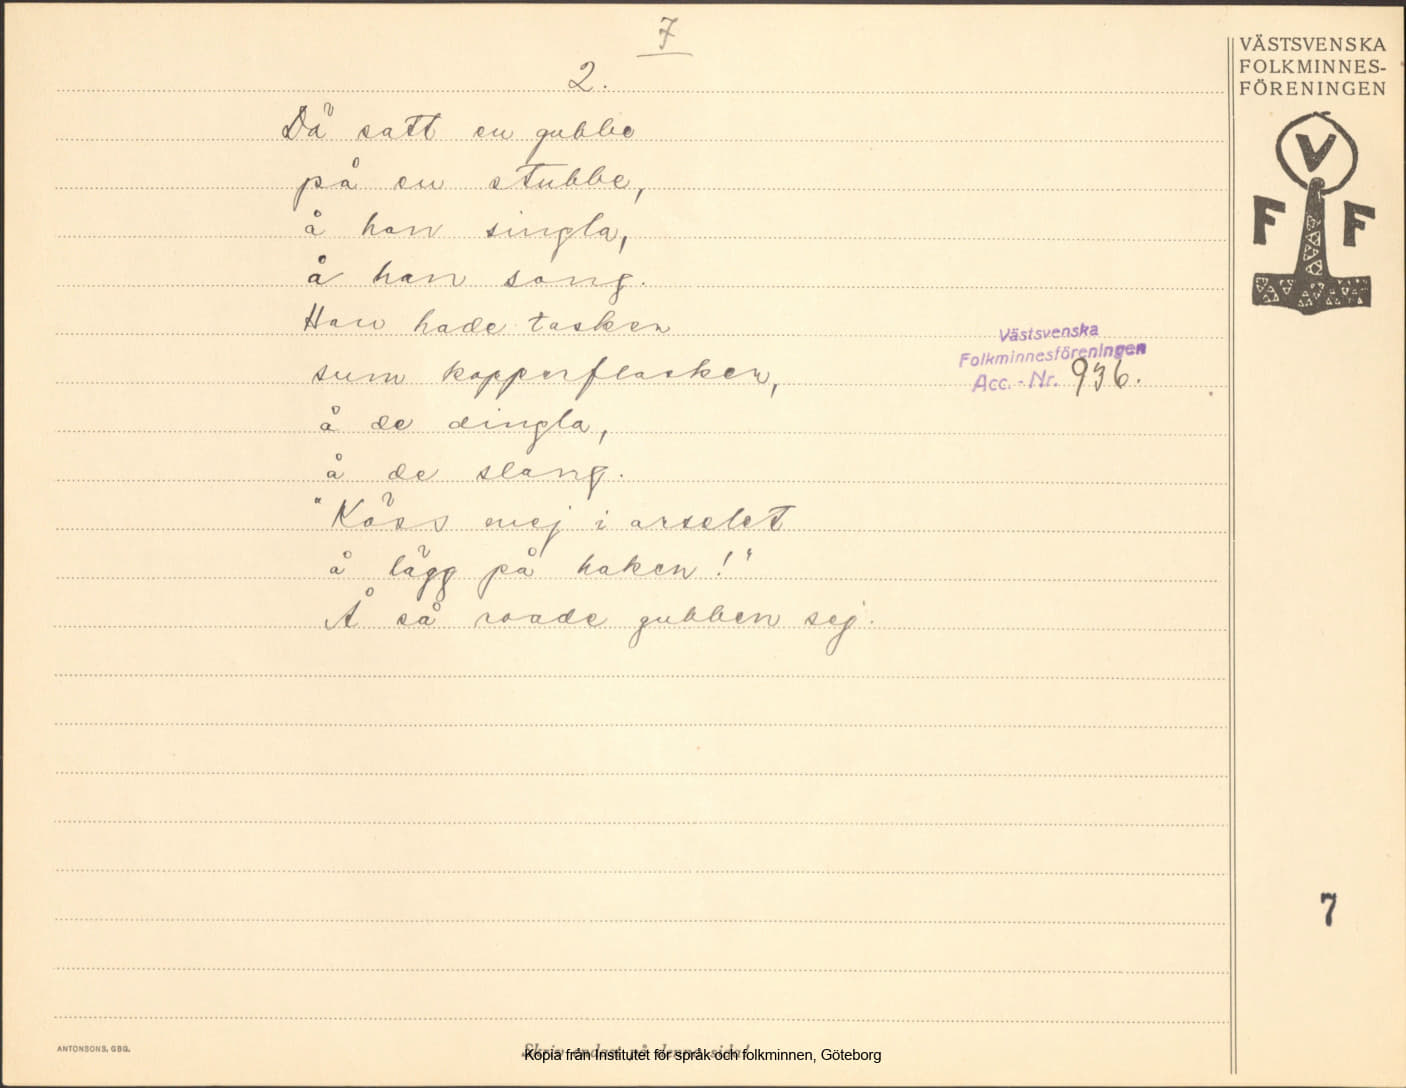 7
2.
Dä satt en gubbe
på en stubbe,
å han singla,
å han sang.
Han hade tasken
sum kopperflasken,
å de dingla,
å de slang.
"Köss mej i arselet
å lägg på haken!"
Å så roade gubben sej.
VÄSTSVENSKA
FOLKMINNES-
FÖRENINGEN
V
F F
Västsvenska
Folkminnesföreningen
Acc.-Nr. 936.
7
ANTONSONS, GBG.
Skriv endast på denna sida!
Kopia från Institutet för språk och folkminnen, Göteborg